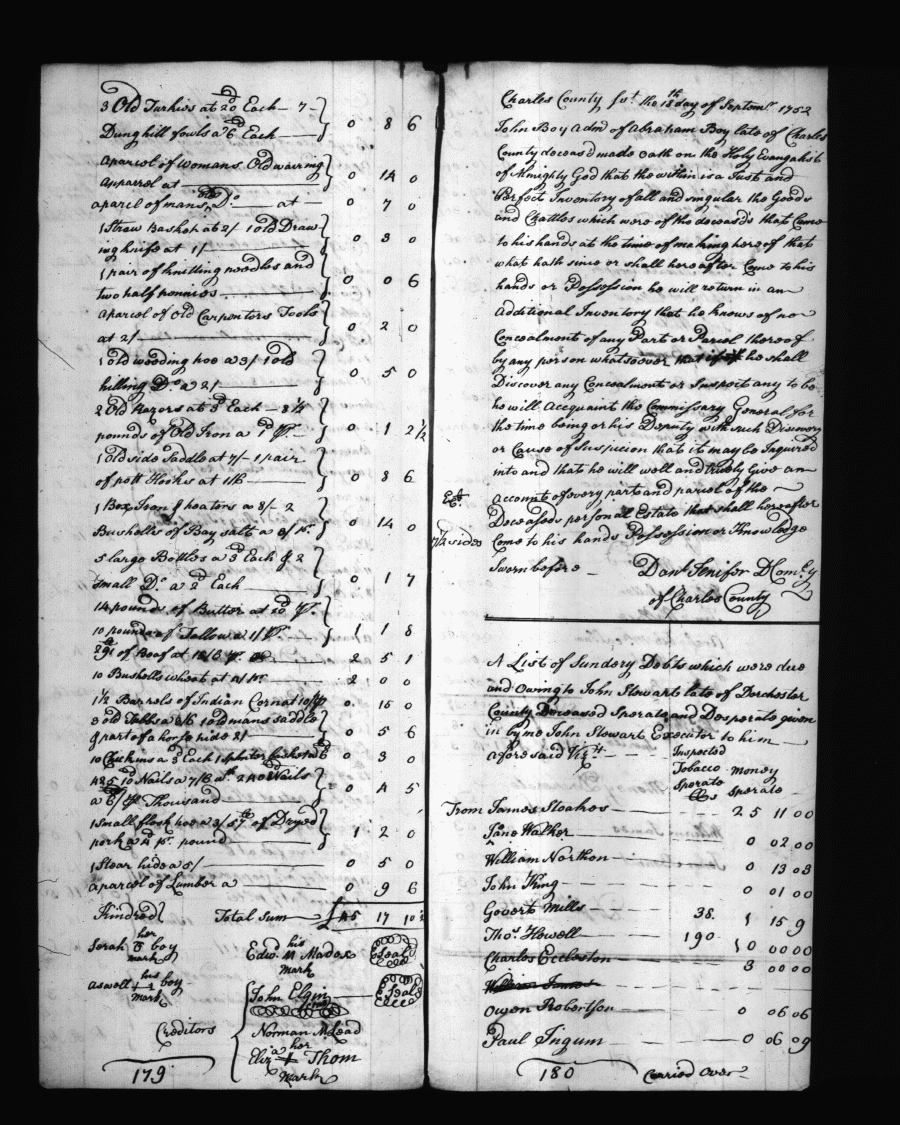 3 Old Turkies at 20d Each — 7 —
Dunghill fowls a 6d Each — 0 8 6
a parcel of womans Old waring
apparrel at — 0 14 0
a parcel of mans old Do — at — 0 7 0
1 Straw Basket at 2/ 1 old Draw
ing knife at 1/ — 0 3 0
1 pair of knitting needles and
two half pennies — 0 0 6
a parcel of Old Carpenters Tools
at 2/ — 0 2 0
1 Old weeding hoe a 3/ 1 old
hilling Do a 2/ — 0 5 0
2 Old Razors at 3d Each — 8 1/2
pounds of Old Iron a 1d p — 0 1 2 1/2
1 Old side Saddle at 7/ — 1 pair
of pott Hooks at 1/6 — 0 8 6
1 Box Iron & heaters a 8/ — 2
Bushells of Bay salt a 3/ pr — 0 14 0
5 large Bottles a 3d Each & 2
small Do a 2d Each — 0 1 7
14 pounds of Butter at 10d p
10 pounds of Tallow a 1/ p — 1 1 8
of Beef at p — 2 5 1
10 Bushells wheat at 4/ pr — 2 0 0
1 1/2 Barrels of Indian Corn at 10/ p 0 15 0
3 old Tubbs a 3/6 1 old mans saddle
& part of a horse hide 2/ — 0 5 6
10 Chickins a 3d Each 1 splinter basket a 6d 0 3 0
485 10d Nails a 7/8 240 Nails
a 6/ p Thousand — 0 4 5
1 Small flesh hoe a 3/ 57 lb of Dryed
pork a 4d pr pound — 1 2 0
1 Stear hide a 5/ — 0 5 0
a parcel of Lumber a — 0 9 6
Kindred Total Sum — £ 45 17 10 1/2
her
Serah boy
mark
his
Edwd M Mados Seal
mark
his
aswell boy
mark
John Elgin Seal
Creditors
Norman McLead
her
Eliza + Thom
mark
179
Charles County Sst. the 18th day of Septemr 1752
John Boy Admr of Abraham Boy late of Charles
County deceasd made oath on the Holy Evangelist
of Almighty God that the within is a Just and
Perfect Inventory of all and singular the Goods
and Chattles which were of the deceasds that Came
to his hands at the time of making hereof that
what hath since or shall hereafter Come to his
hands or Possession he will return in an
Additional Inventory that he knows of no
Concealment of any Part or Parcel thereof
by any person whatsoever that if he shall
Discover any Concealment or Suspect any to be
he will Accquaint the Commissary General for
the time being or his Deputy with such Discovery
or Cause of Suspicion that it may be Inquired
into and that he will well and truely Give an
Exd account of every part and parcel of the
Deceaseds personal Estate that shall hereafter
7/2 sides Come to his hands Possession or Knowledge
Sworn before — Danl Jenifer D Comry
of Charles County
A List of Sundery Debts which were due
and Owing to John Stewart late of Dorchester
County Deceased Sperate and Desperate given
in by me John Stewart Executor to him
aforesaid Vizt
Inspected
Tobacco money
Sperate Sperate
lbs
From James Stoakes — 25 11 00
Jane Walker — 0 02 00
William Northon — 0 13 03
John King — 0 01 00
Govert Mills — 38 1 15 9
Thos. Howell — 190 10 00 00
Charles Eccleston — 3 00 00
William Jones
Owen Robertson — 0 06 06
Paul Ingum — 0 06 09
180 Carried Over